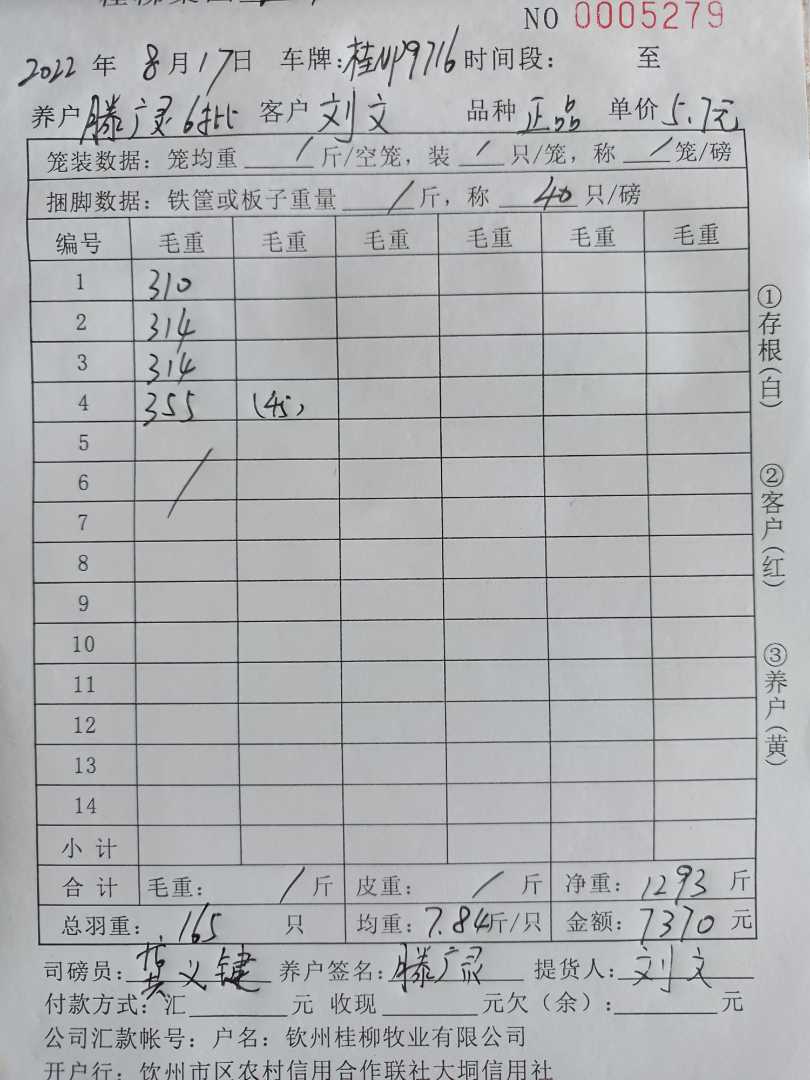 NO 0005279
2022 年 8 月 17 日 车牌:桂NP9716 时间段: 至
养户 滕广灵6批 客户 刘文 品种 正品 单价 5.7元
笼装数据:笼均重 / 斤/空笼,装 / 只/笼,称 / 笼/磅
捆脚数据:铁筐或板子重量 / 斤,称 40 只/磅
编号 毛重 毛重 毛重 毛重 毛重 毛重
1 310
2 314
3 314
4 355 (45)
5
6 /
7
8
9
10
11
12
13
14
小计
合计 毛重: / 斤 皮重: / 斤 净重: 1293 斤
总羽重: 165 只 均重: 7.84斤/只 金额: 7370 元
司磅员: 莫义键 养户签名: 滕广灵 提货人: 刘文
付款方式:汇 元 收现 元欠(余): 元
公司汇款帐号:户名:钦州桂柳牧业有限公司
开户行:钦州市区农村信用合作联社大垌信用社
①存根(白)
②客户(红)
③养户(黄)